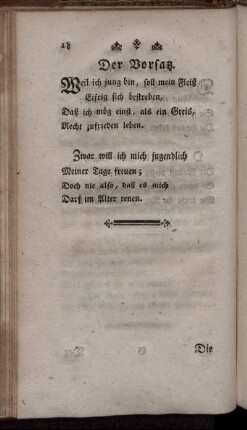 28
Der Vorsatz.
Weil ich jung bin, soll mein Fleiß
Eifrig sich bestreben,
Daß ich mög einst, als ein Greis,
Recht zufrieden leben.
Zwar will ich mich jugendlich
Meiner Tage freuen;
Doch nie also, daß es mich
Darf im Alter reuen.
Die